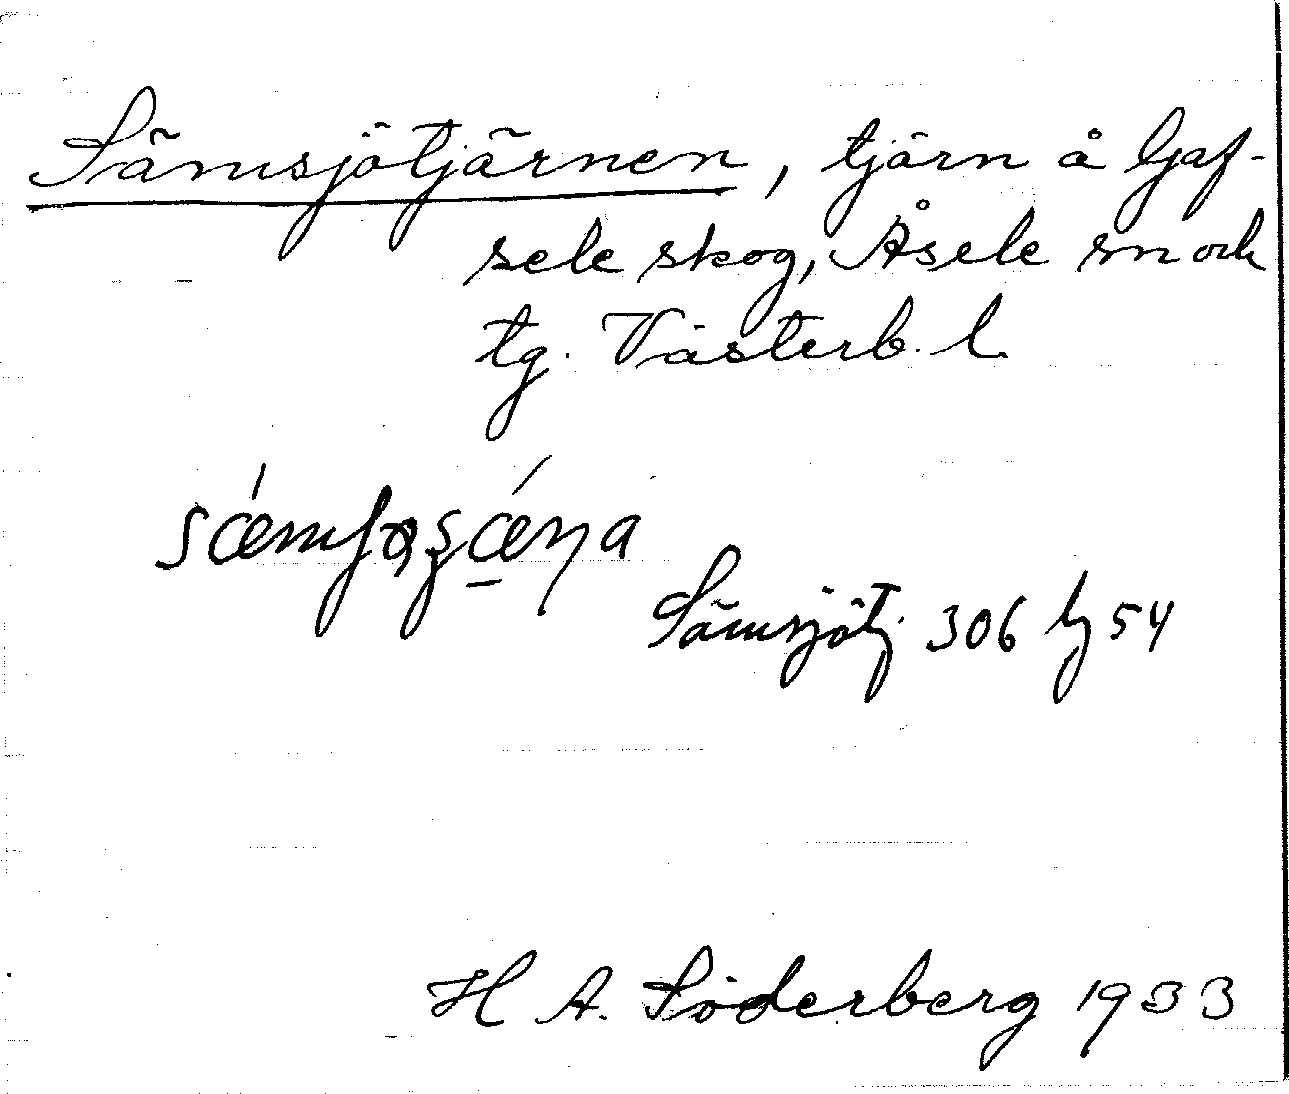 Sämsjötjärnen, tjärn å Gaf-
sele skog, Åsele sn och
tg. Västerb. l.
Sämsjötj. 306 lj 54
H A. Söderberg 1933